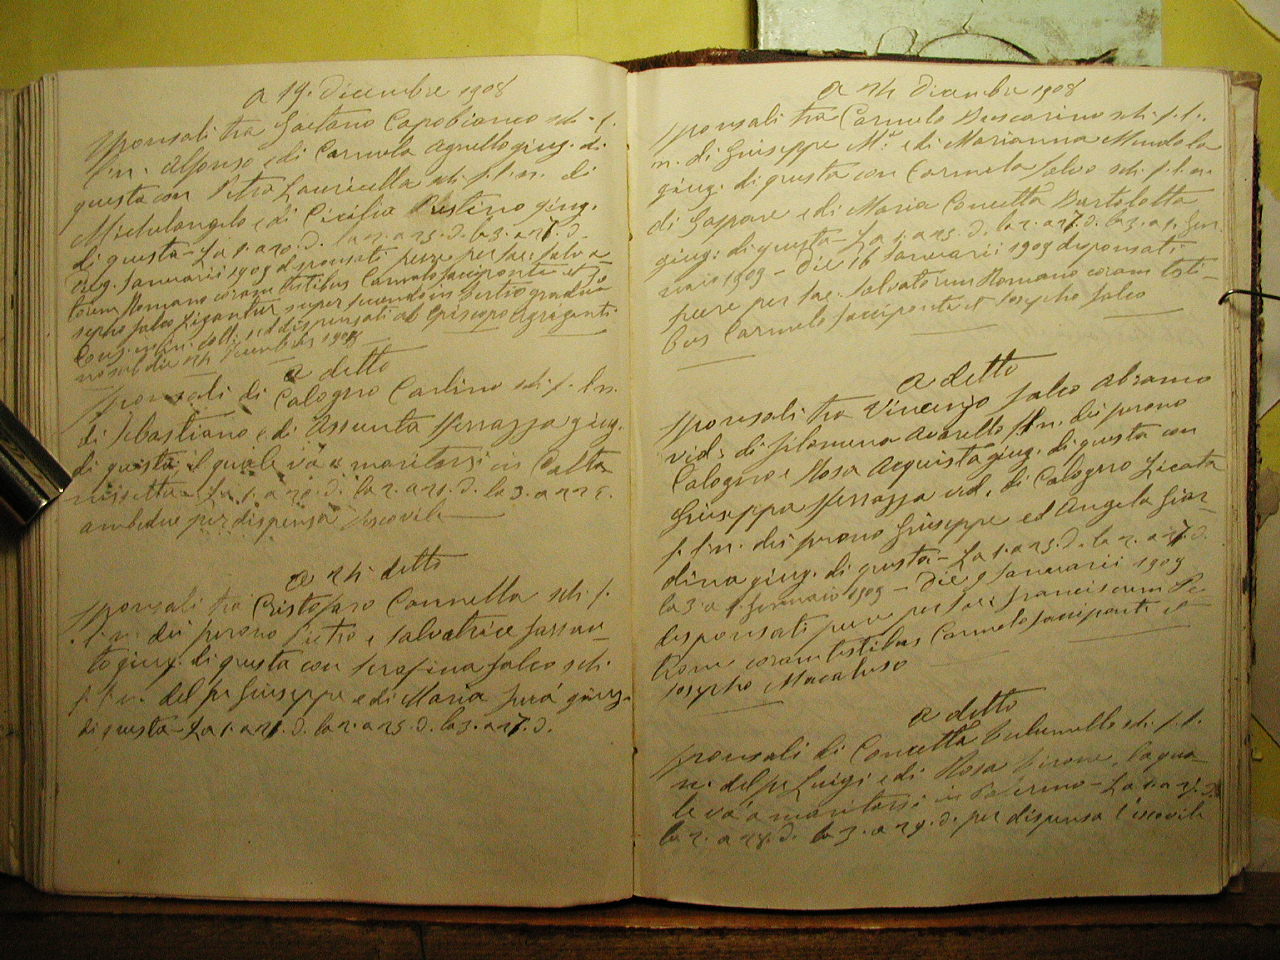 a 19. Dicembre 1908
Sponsali tra Gaetano Capobianco sch. f.
l. n. Alfonso e di Carmela Agnello giug. di
questa con Petra Lauricella sch. f. l. n. di
Michelangelo e di Cicilia Restino giug.
di questa - La 1. a 20. d. la 2. a 25. d. la 3. a 27. d.
Januarii 1909 disponsati fuere per Sac. Salva
torem Romano coram testibus Carmelo Sanciponte et Jo
sepho Falco
Episcopo Agrigenti
no sub die 24 Decembris 1908
a detto
Sponsali di Calogero Carlino sch. f. l. n.
di Sebastiano e di Assunta Terrazza giug.
di questa, il quale và a maritarsi in Calta
nissetta - La 1. a 20. d. la 2. a 25. d. la 3. a 27.
ambedue per dispensa Vescovile
a 24 detto
Sponsali tra Cristofaro Cannella sch. f.
l. n. dei furono Pietro e Salvatrice
to giug. di questa con Serafina Falco sch.
f. l. n. del fu Giuseppe e di Maria giug.
di questa - La 1. a 25. d. la 2. a 25. d. la 3. a 27. d.
a 24 Dicembre 1908
Sponsali tra Carmelo sch. f. l.
n. di Giuseppe Mª e di Marianna Mendola
giug. di questa con Carmela Salvo sch. f. l. n.
di Gaspare e di Maria Concetta Bartolotta
giug. di questa - La 1. a 25. d. la 2. a 27. d. la 3. a 1. Gen
naio 1909 - Die 16 Januarii 1909 disponsati
fuere per Sac. Salvatorem Romano coram testi-
bus Carmelo Sanciponte et Josepho Falco
a detto
Sponsali tra Vincenzo Falco Abramo
ved. di Filomena Avarello f. l. n. dei furono
Calogero e Rosa Acquista giug. di questa con
Giuseppa Terrazza ved. di Calogero Licata
f. l. n. dei furono Giuseppe ed Angela Giar
dina giug. di questa - La 1. a 25. d. la 2. a 27. d.
la 3. a 1. Gennaio 1909 - Die 9 Januarii 1909
disponsati fuere per Sac. Franciscum Pa
Rom coram testibus Carmelo Sanciponte et
Josepho Macaluso
a detto
Sponsali di Concetta sch. f. l.
n. del fu Luigi e di Rosa Pirone, la qua
le và a maritarsi in Palermo - La 1. a 25. d.
la 2. a 27. d. la 3. a 29. d. per dispensa Vescovile